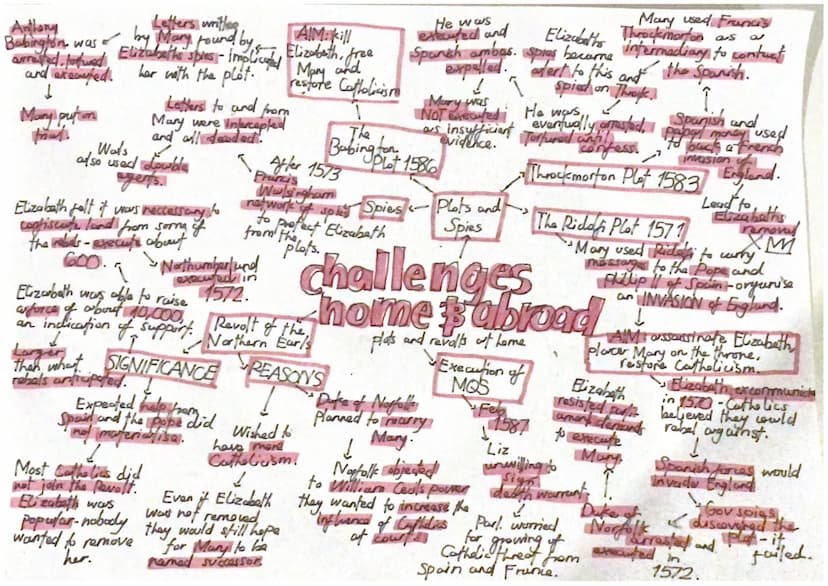 challenges
home & abroad
plots and revolts at home
Plots and
Spies
Spies
After 1573
Francis
Walsingham
network of spies
to protect Elizabeth
from the
plots.
Letters to and from
Mary were intercepted
and all decoded.
Wals
also used double
agents.
The
Babington
Plot 1586
AIM: kill
Elizabeth, free
Mary and
restore Catholicism
Letters written
by Mary found by
Elizabeths spies - implicated
her with the plot.
Anthony
Babington was
arrested, tortured
and executed.
Mary put on
trial.
Throckmorton Plot 1583
Spanish and
papal money used
to back a French
invasion of
England.
Lead to
Elizabeths
removal
Mary used Francis
Throckmorton as a
intermediary to contact
the Spanish.
Elizabeths
spies became
alert to this and
spied on Throck.
He was
eventually arrested,
Tortured until
confess.
He was
executed and
Spanish ambas.
expelled.
Mary was
NOT executed
as insufficient
evidence.
The Ridolfi Plot 1571
Mary used Ridolfi to carry
messages to the Pope and
Phillip II of Spain - organise
an INVASION of England.
AIM: assassinate Elizabeth,
place Mary on the throne.
restore Catholicism.
Elizabeth excommunicated
in 1570 - Catholics
believed they could
rebel against.
Spanish forces would
invade England
Gov spies
discovered the
plot - it
failed.
Duke of
Norfolk
arrested and
executed in
1572.
Elizabeth
resisted parli-
ament demands
to execute
Mary.
Execution of
MQS
Feb
1587
Liz
unwilling to
sign
death warrant
Parl. worried
for growing of
Catholic threat from
Spain and France.
Revolt of the
Northern Earls
REASONS
Duke of Norfolk
Planned to marry
Mary.
Norfolk objected
to William Cecils power
they wanted to increase the
influence of Catholics
at courts
Wished to
have more
Catholicism.
Even if Elizabeth
was not removed,
they would still hope
for Mary to be
named successor.
SIGNIFICANCE
Elizabeth was able to raise
a force of about 10,000.
an indication of support.
Larger
then what
rebels anticipated.
Elizabeth felt it was neccessary to
confiscate land from some of
the rebels - execute about
600
Northumberland
executed in
1572.
Expected help from
Spain and the Pope did
not materialise.
Most Catholics did
not join the Revolt.
Elizabeth was
popular - nobody
wanted to remove
her.